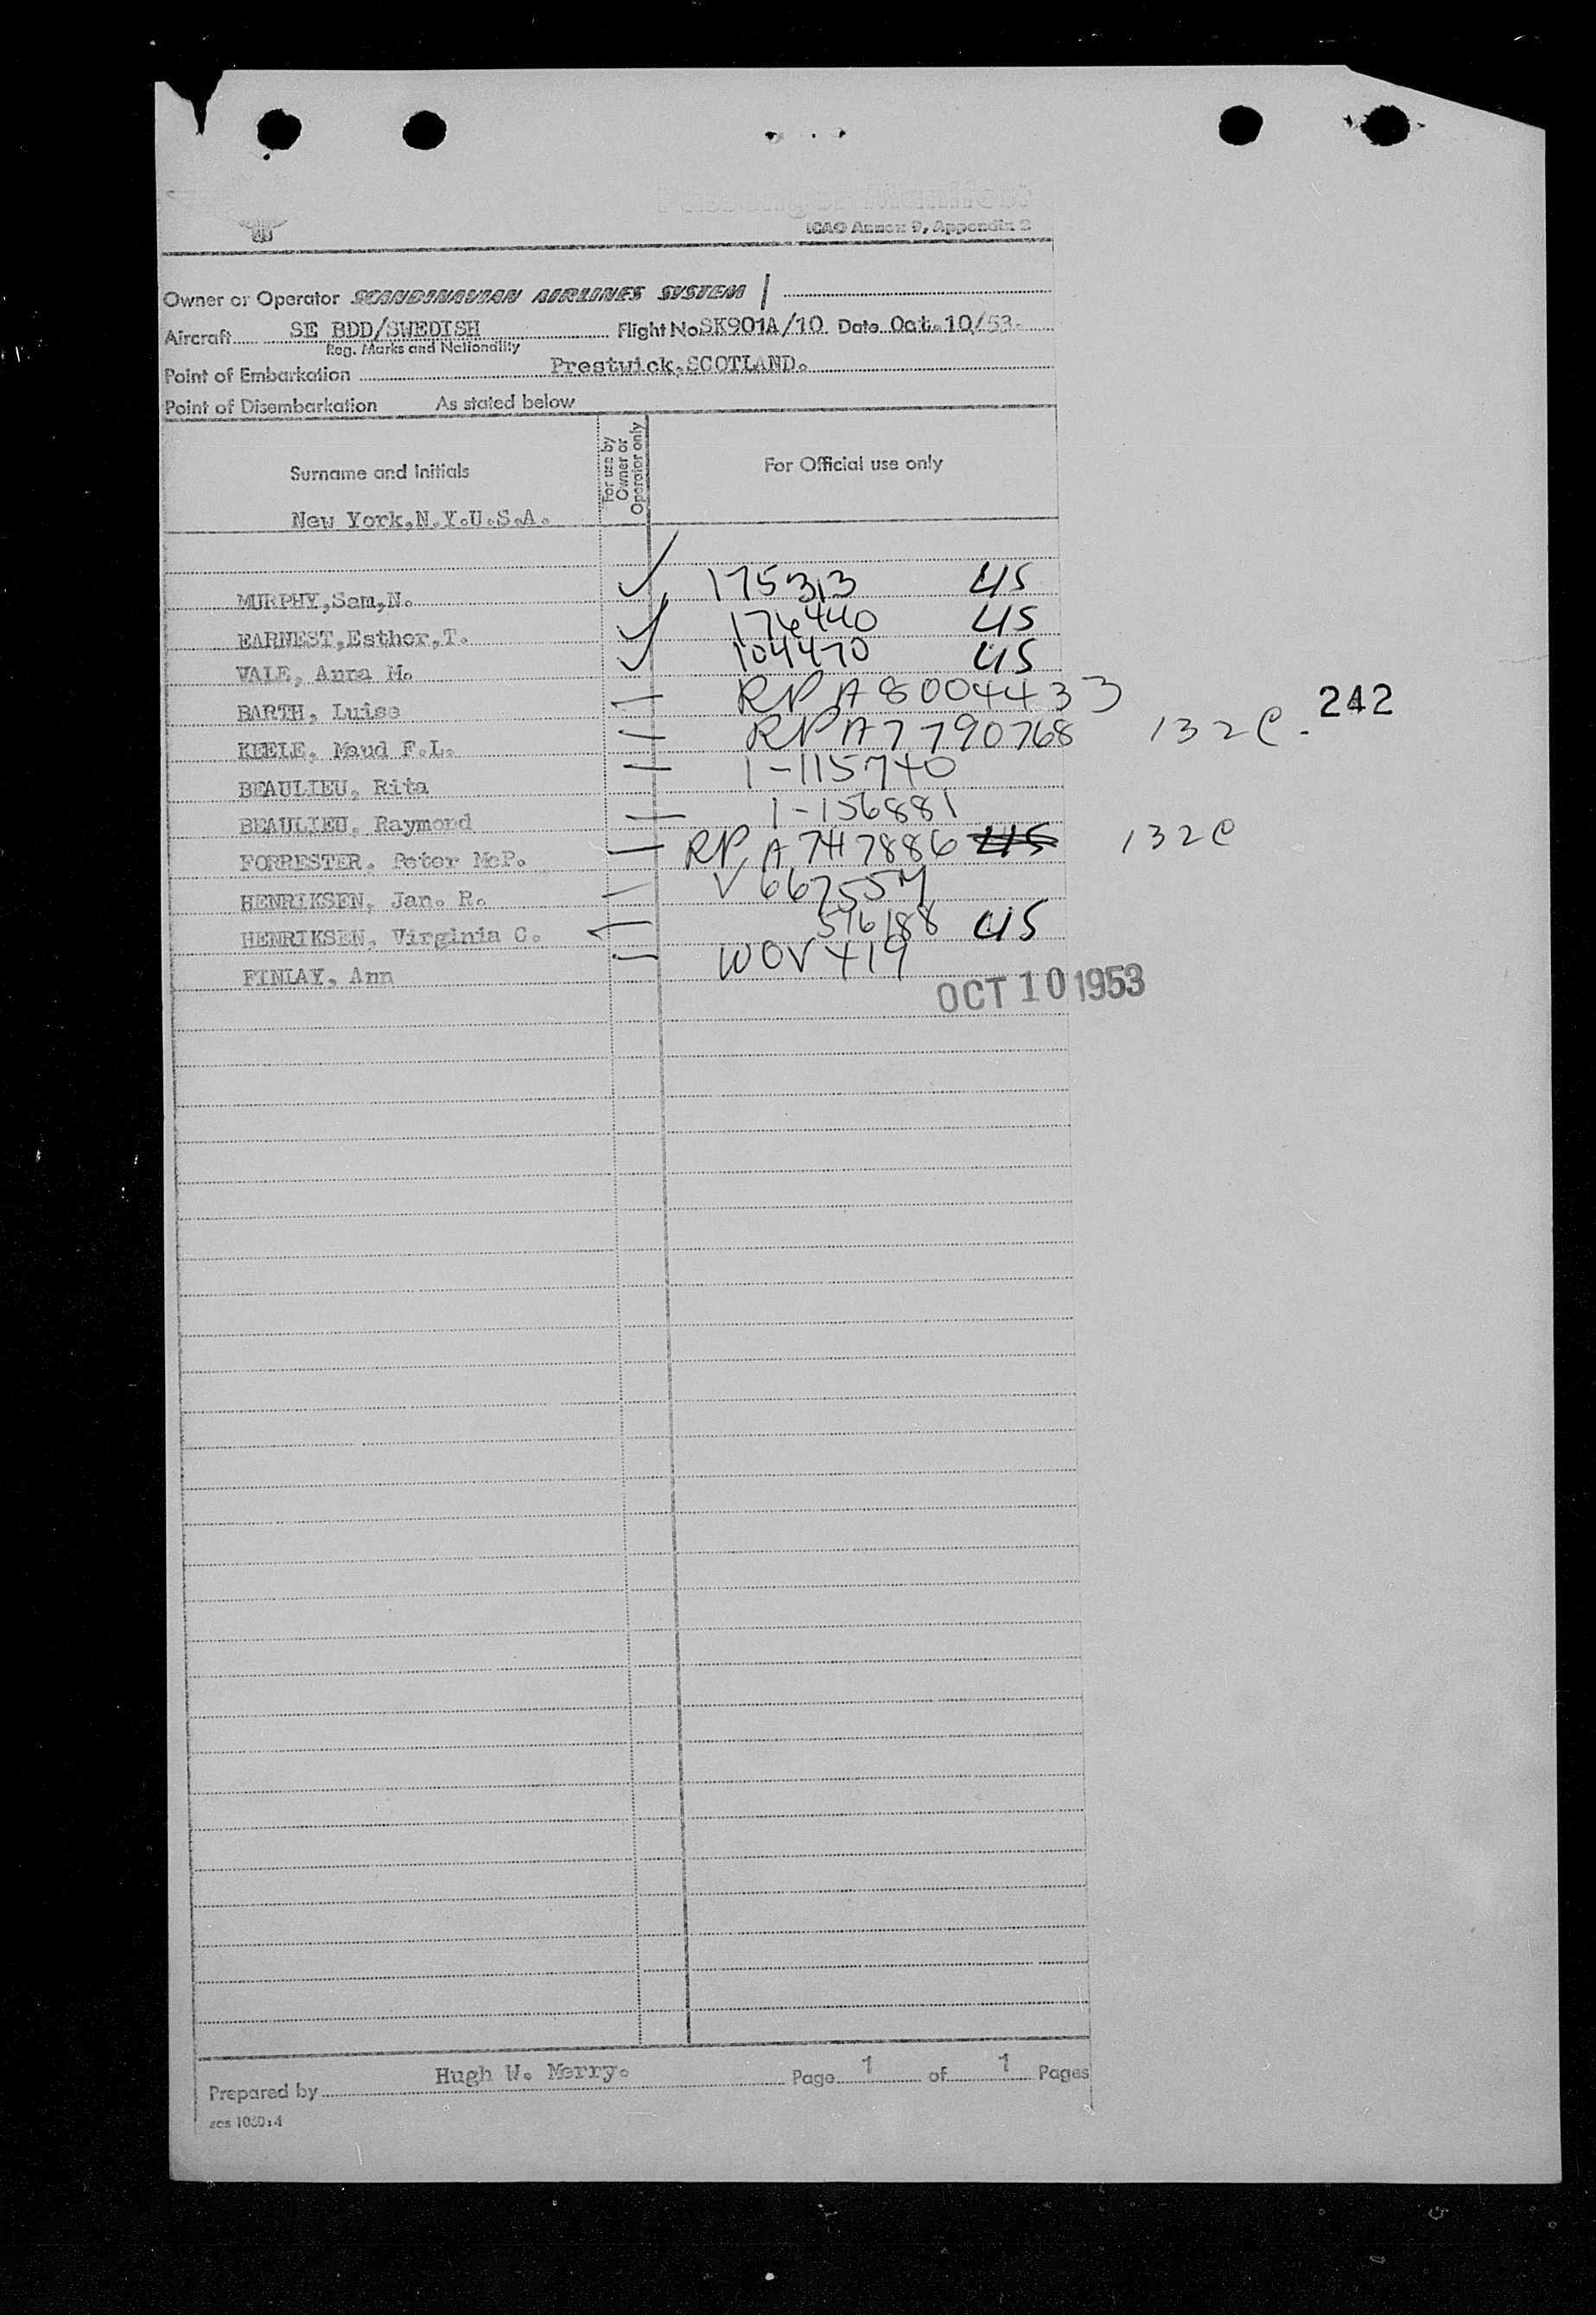 Passenger Manifest
ICAO Annex 9, Appendix 2
Owner or Operator SCANDINAVIAN AIRLINES SYSTEM
Aircraft SE BDD/SWEDISH Flight No SK901A/10 Date Oct.10/53.
Reg. Marks and Nationality
Point of Embarkation Prestwick,SCOTLAND.
Point of Disembarkation As stated below
Surname and Initials For use by Owner or Operator only For Official use only
New York,N.Y.U.S.A.
MURPHY,Sam,N. ✓ 175313 US
EARNEST,Esther,T. ✓ 176440 US
VALE, Anna M. ✓ 104470 US
BARTH, Luise — RP A8004433
242
KEELE, Maud F.L. — RP A7790768 132C.
BEAULIEU, Rita — 1-115740
BEAULIEU, Raymond — 1-156881
FORRESTER, Peter McP. — RP A7417886 US 132C
HENRIKSEN, Jan. R. — V 667554
HENRIKSEN, Virginia C. 516188 US
FINLAY, Ann — WOV 419
OCT 10 1953
Prepared by Hugh W. Merry. Page 1 of 1 Pages